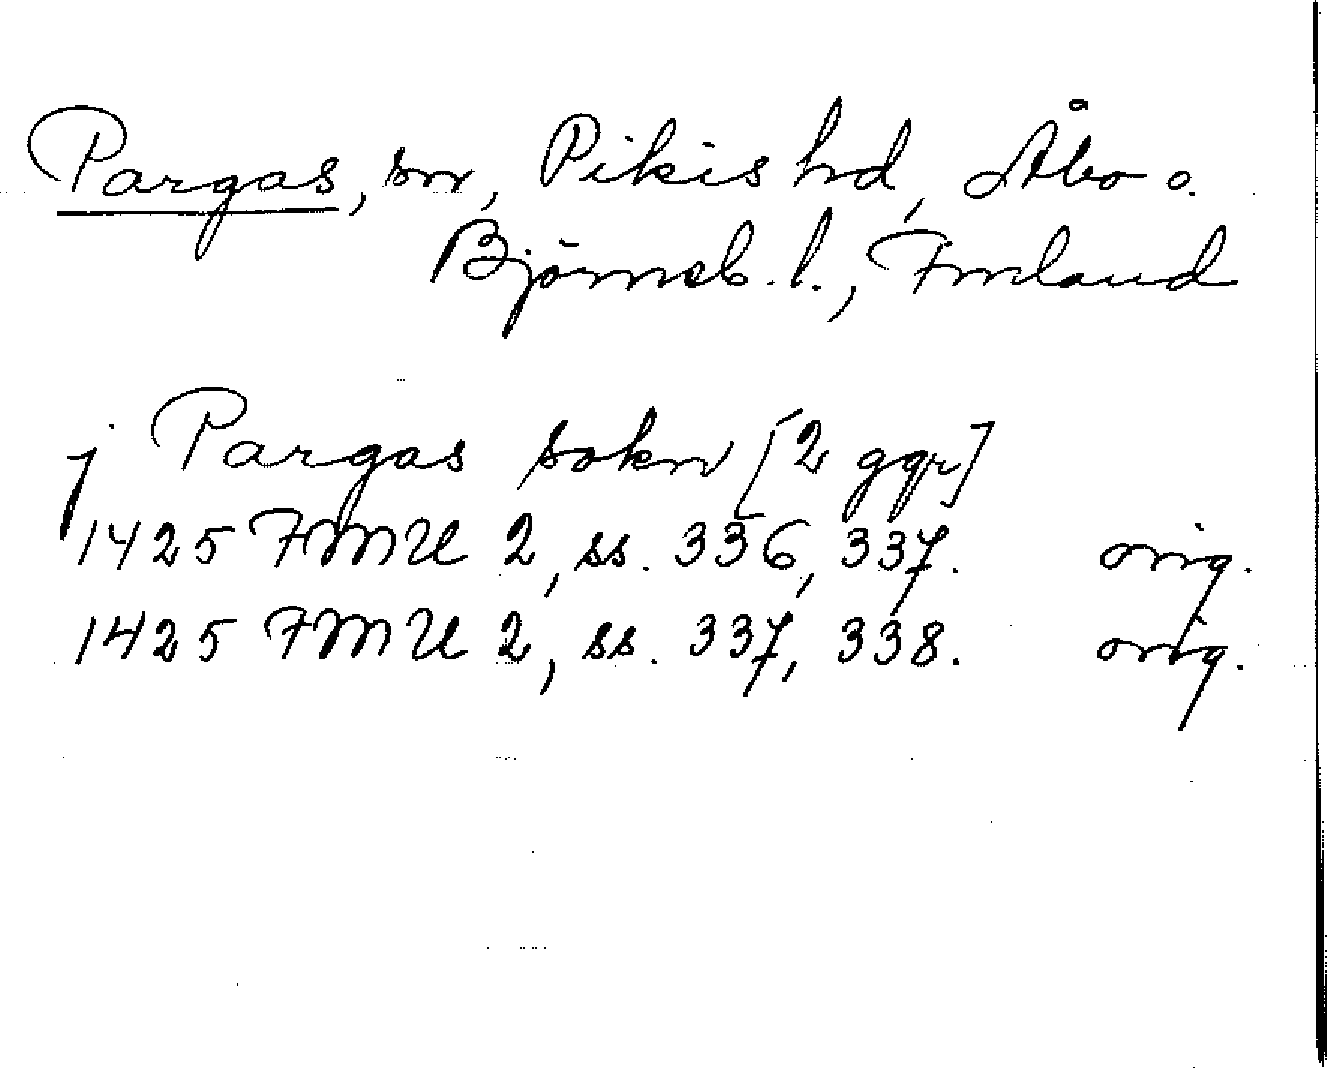 Pargas, sn, Pikis hd, Åbo o.
Björneb. l., Finland
j Pargas sokn [2 ggr]
1425 FMU 2, ss. 336, 337. orig.
1425 FMU 2, ss. 337, 338. orig.